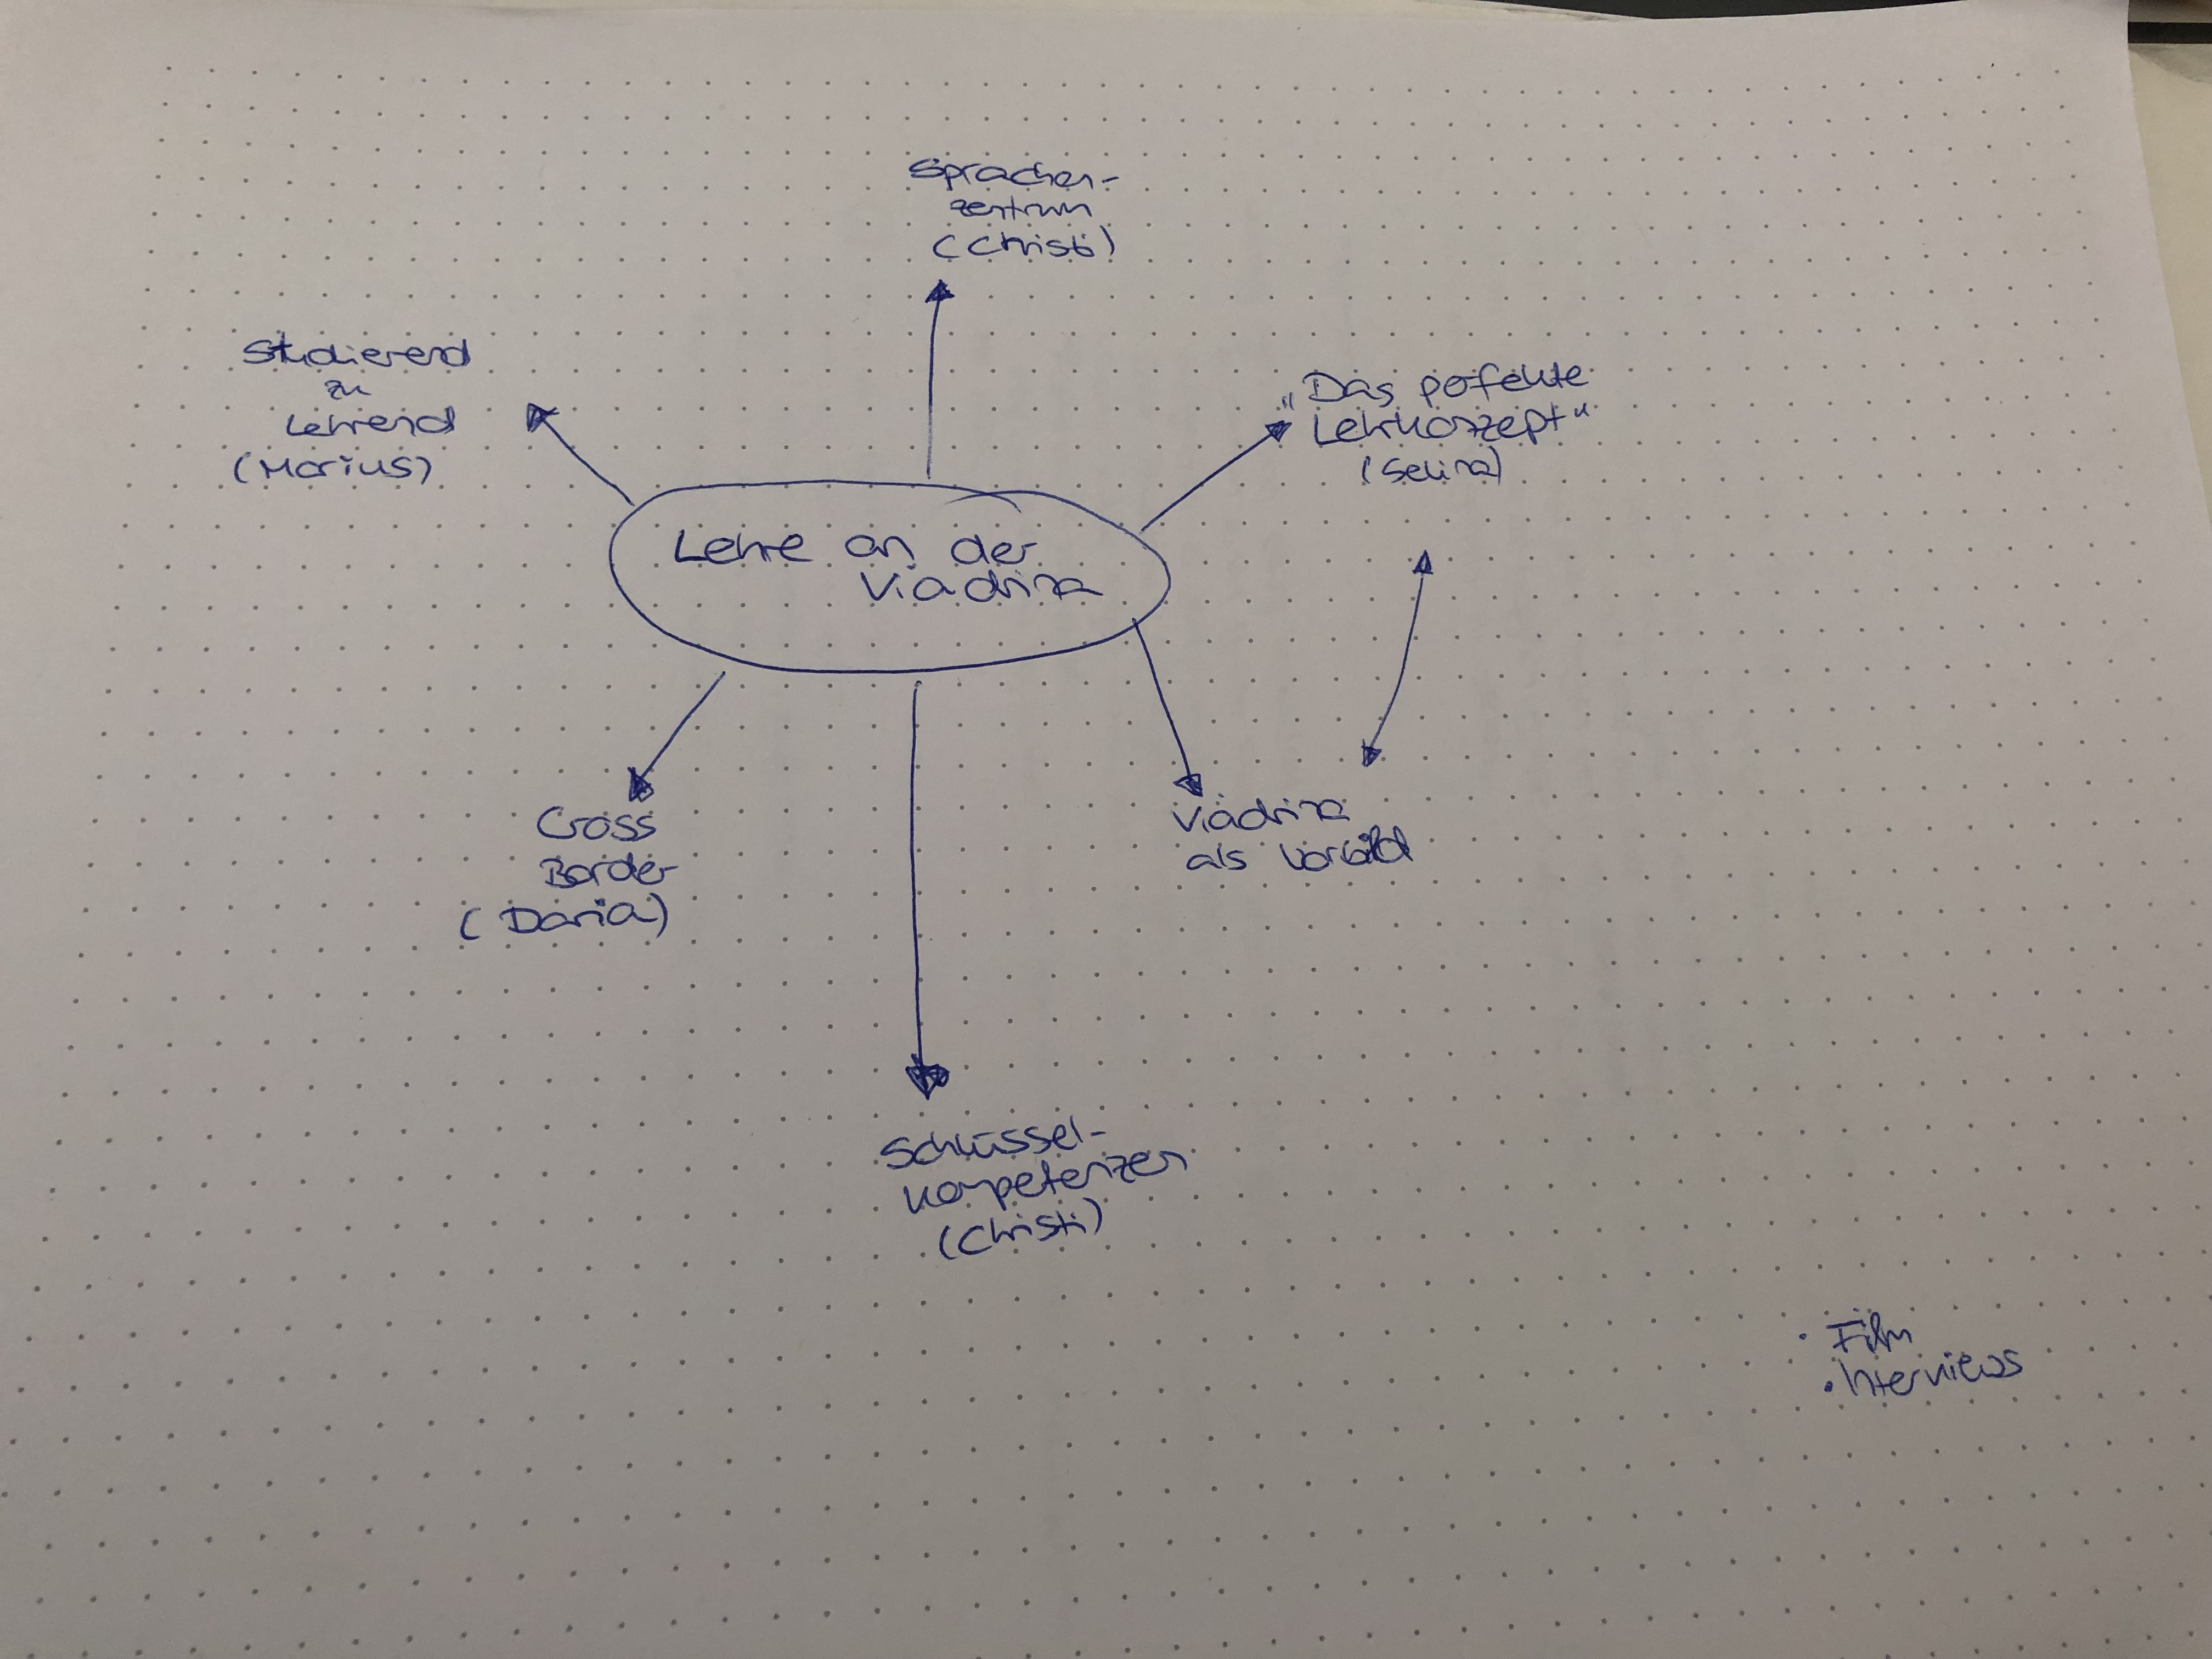 Sprachen-
zentrum
(Christi)
Studierend
zu
Lehrend
(Marius)
"Das pefekte
Lehrkonzept"
(Selina)
Lehre an der
Viadrina
Cross
Border
(Daria)
Viadrina
als Vorbild
Schlüssel-
kompetenzen
(Christi)
· Film
· Interviews